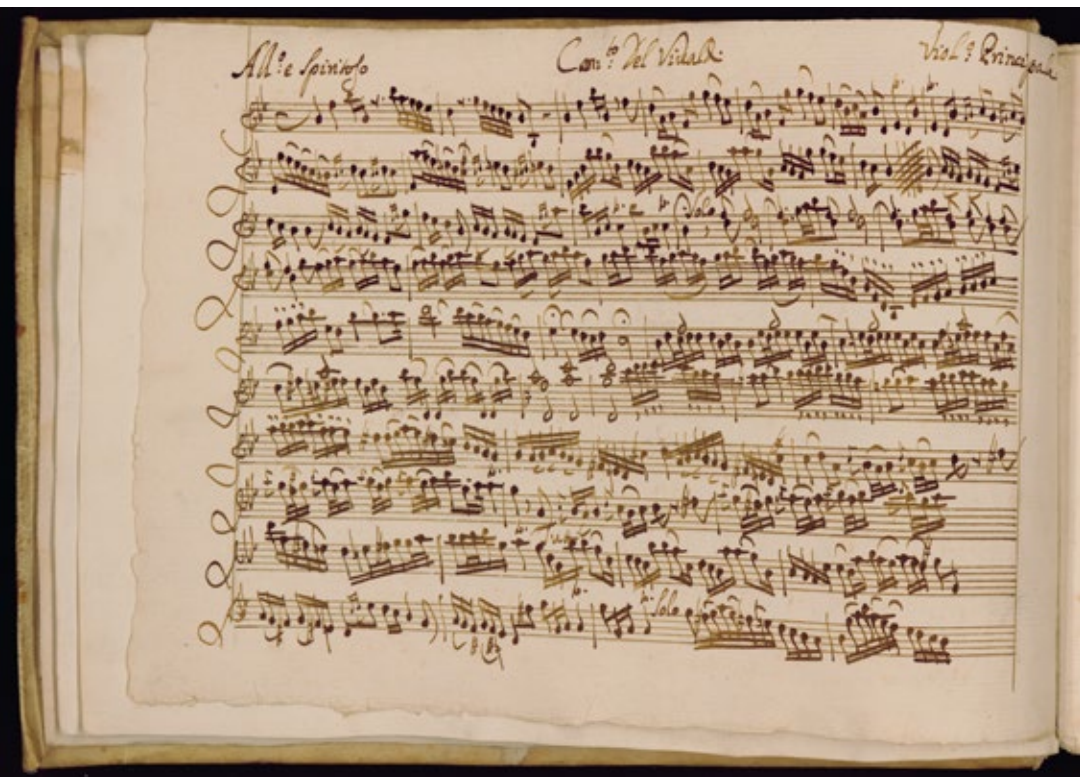 All:o e Spiritoso Con:to Del Vivaldi Viol:o Principale
p: p:
p: e p: Solo
p: Tutti
p: p: Solo